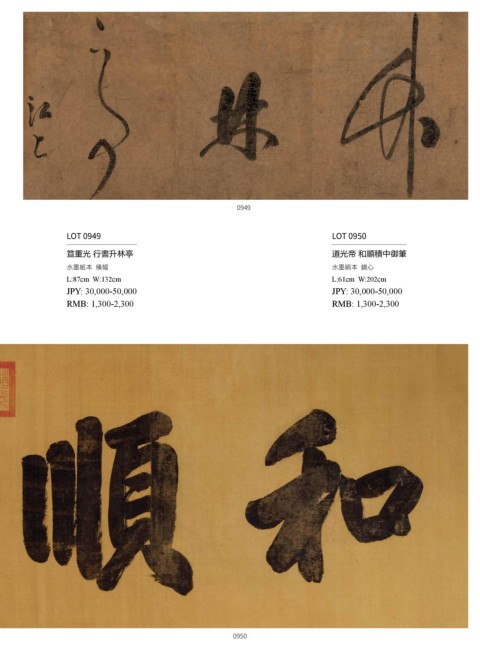 升林亭
江上
0949
LOT 0949
笪重光 行書升林亭
水墨紙本 橫幅
L:87cm W:132cm
JPY: 30,000-50,000
RMB: 1,300-2,300
LOT 0950
道光帝 和順積中御筆
水墨絹本 鏡心
L:61cm W:202cm
JPY: 30,000-50,000
RMB: 1,300-2,300
和順
0950